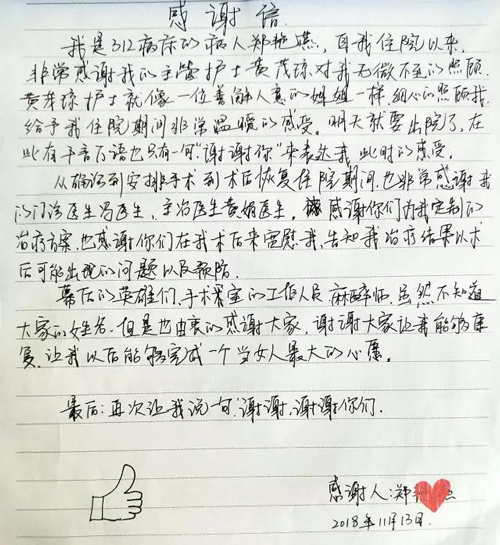 感谢信
我是312病床的病人郑艳燕，自我住院以来，
非常感谢我的主管护士黄茂琼对我无微不至的照顾，
黄茂琼护士就像一位善解人意的姐姐一样，细心的照顾我，
给予我住院期间非常温暖的感受。明天就要出院了，在
此有千言万语也只有一句"谢谢你"来表达我此时的感受。
从确诊到安排手术到术后恢复住院期间，也非常感谢我
的门诊医生冯医生，主治医生黄娟医生。感谢你们为我定制的
治疗方案，也感谢你们在我术后来安慰我，告知我治疗结果以术
后可能出现的问题以及预防。
幕后的英雄们，手术室的工作人员 麻醉师，虽然不知道
大家的姓名，但是也由衷的感谢大家，谢谢大家让我能够康
复，让我以后能够完成一个当女人最大的心愿。
最后：再次让我说一句"谢谢，谢谢你们．
感谢人：郑
2018年11月13日．